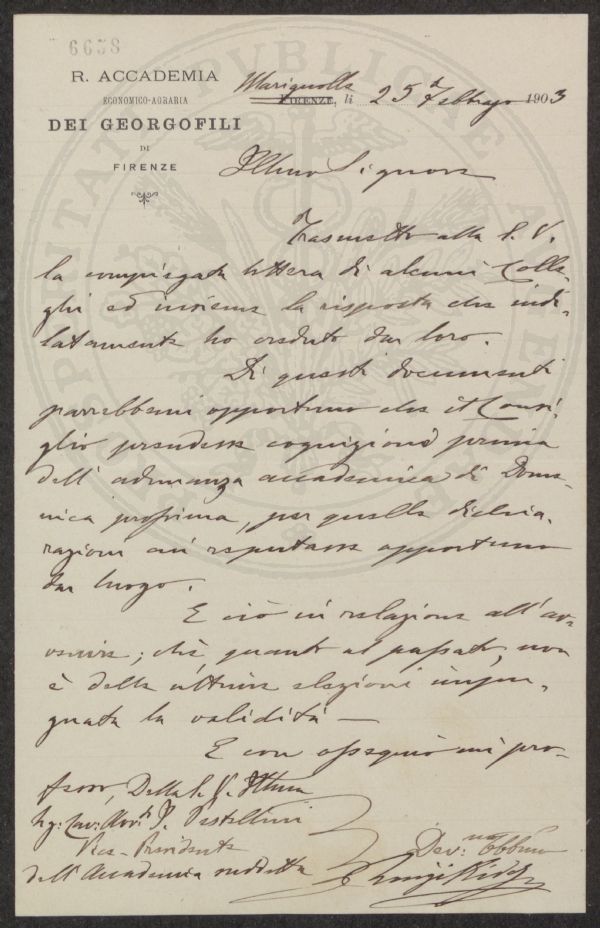 6658
R. ACCADEMIA
ECONOMICO-AGRARIA
DEI GEORGOFILI
DI
FIRENZE
Marignolle
FIRENZE, li 25 d Febbrajo 1903
Illmo Signore
Trasmetto alla S. V.
la compiegata lettera di alcuni Colle-
ghi ed insieme la risposta che indi-
latamente ho creduto dar loro.
Di questi documenti
parrebbemi opportuno che il Consi-
glio prendesse cognizione prima
dell' adunanza accademica di Dome-
nica prossima, per quelle dichia-
razioni cui reputasse opportuno
dar luogo.
E ciò in relazione all' av-
venire; chè quanto al passato, non
è delle ultime elezioni impu-
gnata la validità —
E con ossequio mi pro-
fesso, Della S. V. Illma
Sig: Cav: Avv: P. Pestellini
Vice-Presidente
dell' Accademia suddetta
Dev:mo Obbmo
Luigi Ridolfi
PROSPERITATI PUBLICAE AUGENDAE